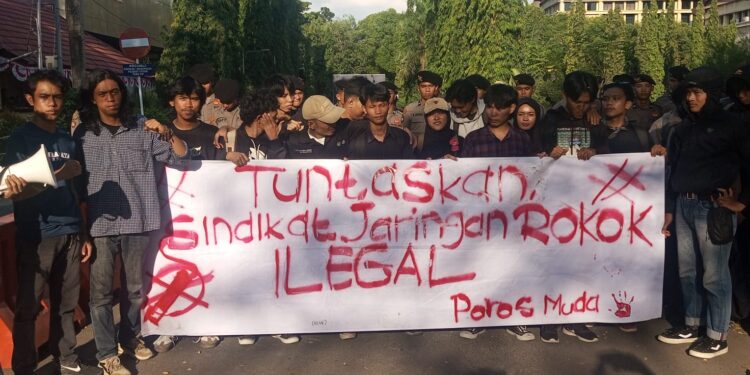 Tuntaskan,
Sindikat Jaringan ROKOK
ILEGAL
Poros Muda